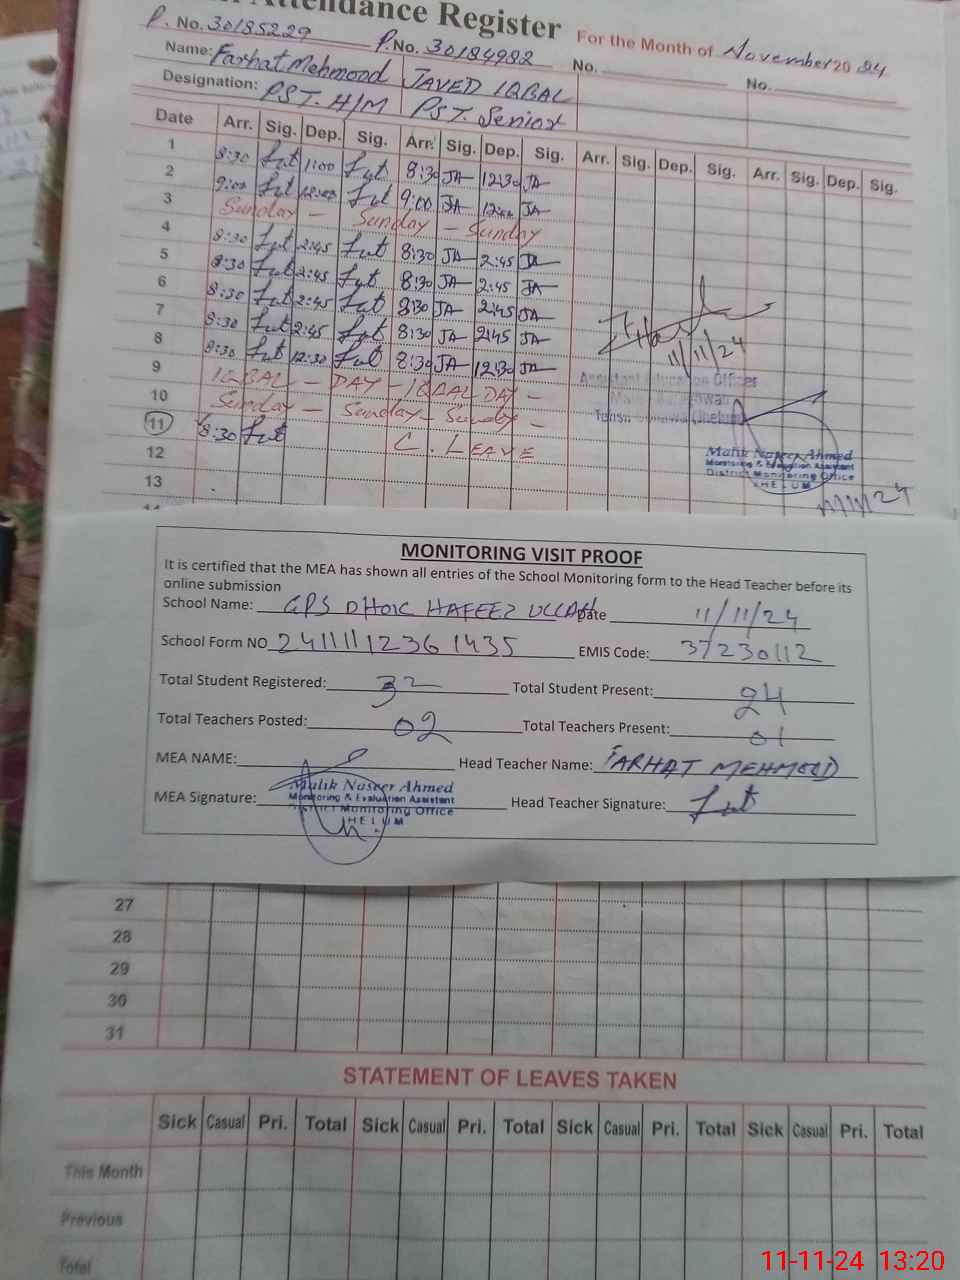 Attendance Register
For the Month of November 2024
P. No. 30185229 P. No. 30184982 No. No.
Name: Farhat Mehmood JAVED IQBAL
Designation: PST. H/M PST. Senior
Date Arr. Sig. Dep. Sig. Arr. Sig. Dep. Sig. Arr. Sig. Dep. Sig. Arr. Sig. Dep. Sig.
1 8:30 1:00 8:30 JA 12:30 JA
2 9:00 12:00 9:00 JA 12:00 JA
3 Sunday - Sunday - Sunday
4 8:30 2:45 8:30 JA 2:45 JA
5 8:30 2:45 8:30 JA 2:45 JA
6 8:30 2:45 8:30 JA 2:45 JA
7 8:30 2:45 8:30 JA 2:45 JA
8 8:30 12:30 8:30 JA 12:30 JA
9 IQBAL - DAY - IQBAL DAY -
10 Sunday - Sunday - Sunday -
11 8:30 C. LEAVE
12
13
11/11/24
Assistant Education Officer
Malik Naseer Ahmed
Monitoring & Evaluation Assistant
District Monitoring Office
JHELUM
11/11/24
MONITORING VISIT PROOF
It is certified that the MEA has shown all entries of the School Monitoring form to the Head Teacher before its
online submission
School Name: GPS DHOK HAFEEZ ULLAH Date 11/11/24
School Form NO 24111112361435 EMIS Code: 37230112
Total Student Registered: 32 Total Student Present: 24
Total Teachers Posted: 02 Total Teachers Present: 01
MEA NAME: Head Teacher Name: FARHAT MEHMOOD
Malik Naseer Ahmed
Monitoring & Evaluation Assistant
District Monitoring Office
JHELUM
MEA Signature: Head Teacher Signature:
27
28
29
30
31
STATEMENT OF LEAVES TAKEN
Sick Casual Pri. Total Sick Casual Pri. Total Sick Casual Pri. Total Sick Casual Pri. Total
This Month
Previous
Total
11-11-24 13:20